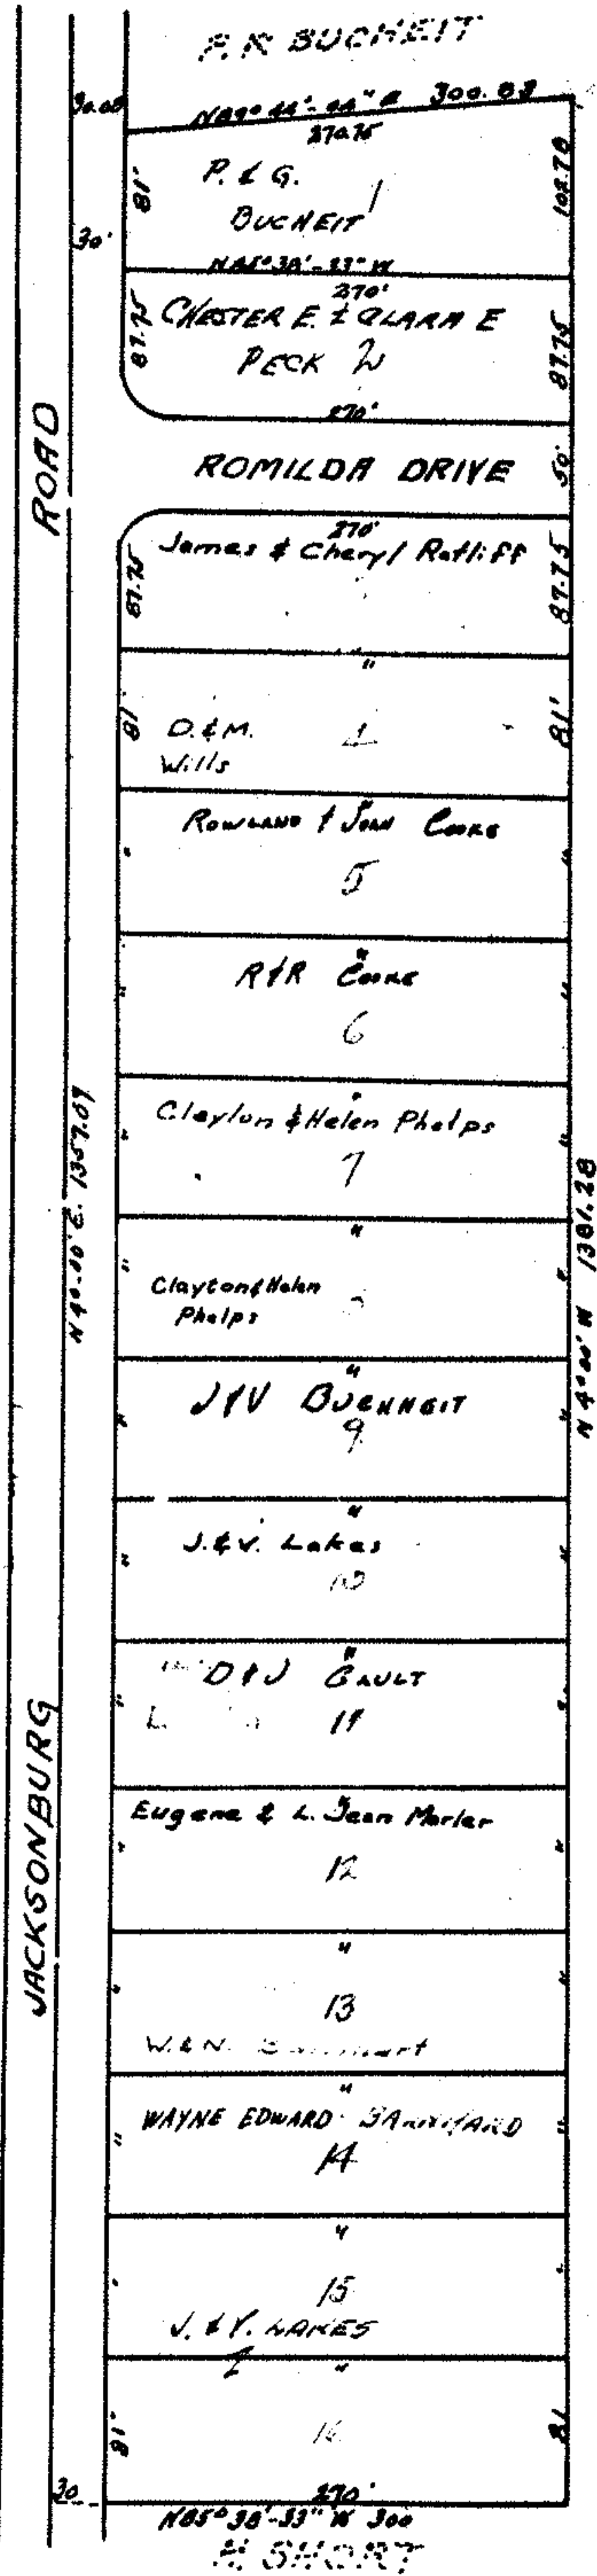 F. R. BUCHEIT
30.00
300.83
270.75
P. & G.
BUCHEIT
1
81'
102.70
30'
N85°38'-33" W
270'
CHESTER E. & CLARA E
PECK 2
87.75
87.75
270'
ROMILDA DRIVE
50'
ROAD
270'
James & Cheryl Ratliff
87.75
87.75
"
D. & M.
Wills
4
81'
81'
"
Rowland & Joan Cooke
5
"
"
"
R & R Cooke
6
"
"
"
Clayton & Helen Phelps
7
"
"
N 4°-00' E. 1357.07
N 4°00' W 1381.28
"
Clayton & Helen
Phelps
"
"
"
J & V BUCHHEIT
9
"
"
"
J. & V. Lakes
10
"
"
"
D & J GAULT
11
"
"
"
Eugene & L. Jean Marler
12
"
"
JACKSONBURG
"
13
W. & N.
"
"
"
WAYNE EDWARD
14
"
"
"
15
J. & V. LAKES
"
"
"
16
81'
81
30
270'
N85°38'-33" W 300
H. SHORT